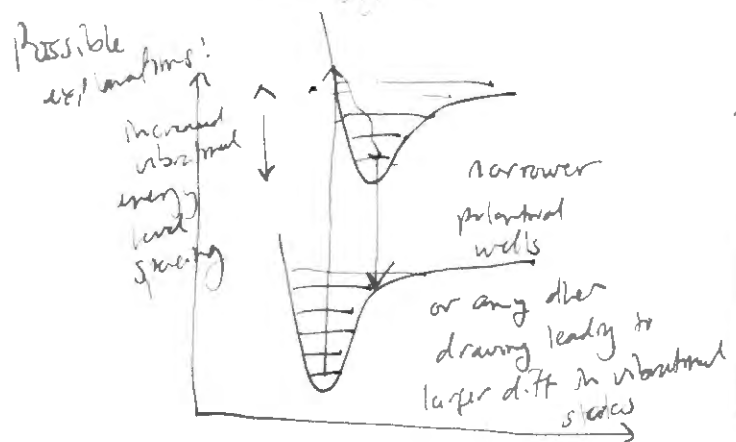 Possible
explanations:
increased
vibrational
energy
level
spacing
narrower
potential
wells
or any other
drawing leading to
larger diff in vibrational
states